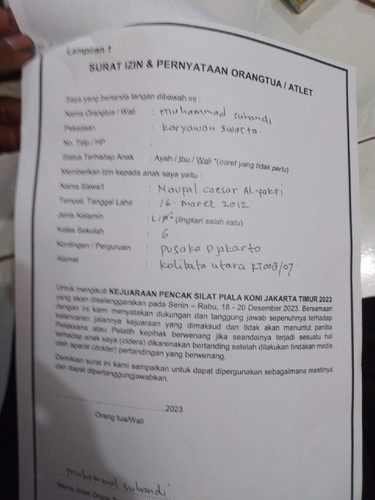 Lampiran 1
SURAT IZIN & PERNYATAAN ORANGTUA / ATLET
Saya yang bertanda tangan dibawah ini :
Nama Orangtua / Wali : muhammad suhandi
Pekerjaan : karyawan swasta.
No. Telp / HP :
Status Terhadap Anak : Ayah / Ibu / Wali *(coret yang tidak perlu)
Memberikan izin kepada anak saya yaitu :
Nama Siswa/i : Naupal caesar Al-
Tempat, Tanggal Lahir : 16. maret 2012
Jenis Kelamin : L / P* (lingkari salah satu)
Kelas Sekolah : 6
Kontingen / Perguruan : pusaka Djakarta
Alamat : kalibata utara RT008/07
Untuk mengikuti KEJUARAAN PENCAK SILAT PIALA KONI JAKARTA TIMUR 2023
yang akan diselenggarakan pada Senin – Rabu, 18 - 20 Desember 2023. Bersamaan
dengan ini kami menyatakan dukungan dan tanggung jawab sepenuhnya terhadap
kelancaran jalannya kejuaraan yang dimaksud dan tidak akan menuntut panitia
Pelaksana atau Pelatih kepihak berwenang jika seandainya terjadi sesuatu hal
terhadap anak saya (cidera) dikarenakan bertanding setelah dilakukan tindakan medis
oleh aparat (dokter) pertandingan yang berwenang.
Demikian surat ini kami sampaikan untuk dapat dipergunakan sebagaimana mestinya
dan dapat dipertanggungjawabkan.
2023
Orang tua/Wali
muhammad suhandi